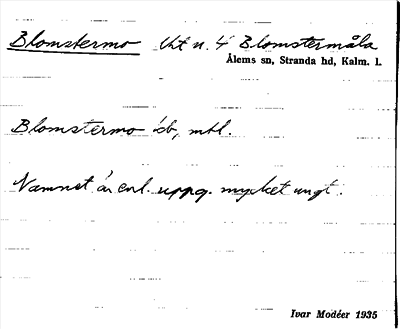 Blomstermo Utt n. 4 Blomstermåla
Ålems sn, Stranda hd, Kalm. l.
Blomstermo ib, mtl.
Namnet är enl. uppg. mycket ungt.
Ivar Modéer 1935